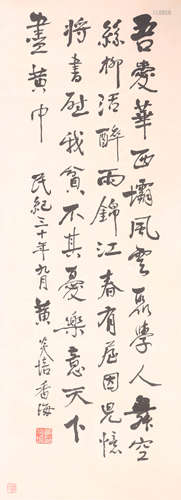 吾愛華西壩風雲聚學人舞空
絲柳活醉雨錦江春有蓝因見憶
將書慰我貧不其憂樂意天下
盡黄中
民紀三十年九月黄炎培香海